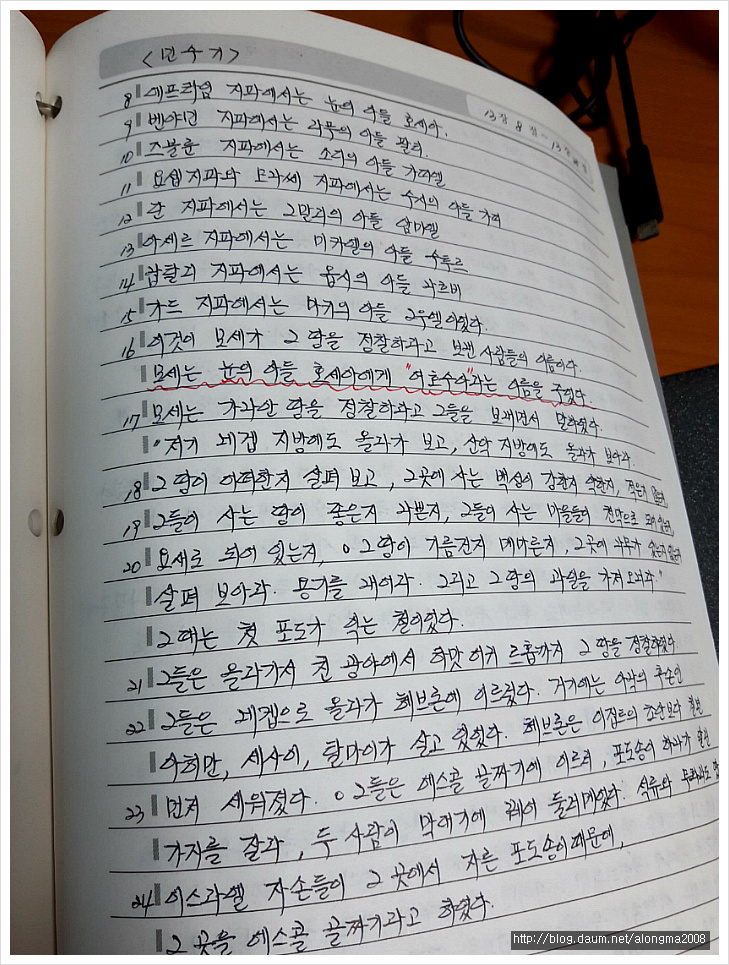 <민수기>
13장 8절 - 13장
8 에프라임 지파에서는 눈의 아들 호세아.
9 벤야민 지파에서는 라푸의 아들 팔티.
10 즈불룬 지파에서는 소디의 아들 가띠엘
11 요셉지파와 므나쎄 지파에서는 수시의 아들 가띠
12 단 지파에서는 그말리의 아들 암미엘
13 아세르 지파에서는 미카엘의 아들 스투르
14 납탈리 지파에서는 웁시의 아들 나흐비
15 가드 지파에서는 마키의 아들 그우엘이었다.
16 이것이 모세가 그 땅을 정찰하라고 보낸 사람들의 이름이다.
모세는 눈의 아들 호세아에게 "여호수아"라는 이름을 주었다.
17 모세는 가나안 땅을 정찰하라고 그들을 보내면서 말하였다.
"저기 네겝 지방에도 올라가 보고, 산악 지방에도 올라가 보아라.
18 그 땅이 어떠한지 살펴 보고, 그곳에 사는 백성이 강한지 약한지, 적은지 많은지
19 그들이 사는 땅이 좋은지 나쁜지, 그들이 사는 마을들이 천막으로 되어 있는지,
20 요새로 되어 있는지, ○ 그 땅이 기름진지 메마른지, 그곳에 나무가 있는지 없는지
살펴 보아라. 용기를 내어라. 그리고 그 땅의 과일을 가져 오너라."
그 때는 첫 포도가 익는 철이었다.
21 그들은 올라가서 친 광야에서 하맛 어귀 르홉까지 그 땅을 정찰하였다
22 그들은 네겝으로 올라가 헤브론에 이르렀다. 거기에는 아낙의 후손인
아히만, 세사이, 탈마이가 살고 있었다. 헤브론은 이집트의 초안보다 일곱 해
23 먼저 세워졌다. ○ 그들은 에스콜 골짜기에 이르러, 포도송이 하나가 달린
가지를 잘라, 두 사람이 막대기에 꿰어 둘러메었다. 석류와 무화과도
24 이스라엘 자손들이 그 곳에서 자른 포도송이 때문에,
그 곳을 에스콜 골짜기라고 하였다.
http://blog.daum.net/alongma2008